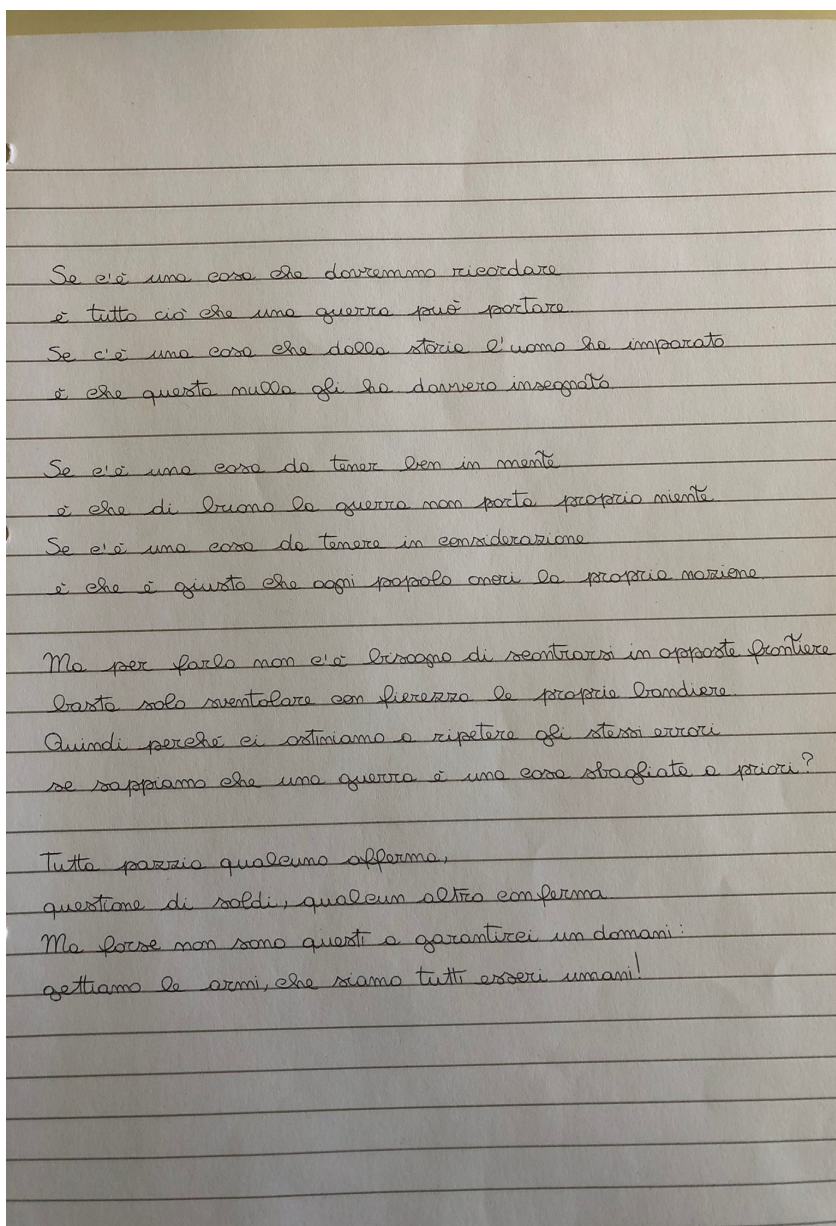 Se c'è una cosa che dovremmo ricordare
è tutto ciò che una guerra può portare.
Se c'è una cosa che dalla storia l'uomo ha imparato
è che questa nulla gli ha davvero insegnato.
Se c'è una cosa da tener ben in mente
è che di buono la guerra non porta proprio niente.
Se c'è una cosa da tenere in considerazione
è che è giusto che ogni popolo onori la propria nazione.
Ma per farlo non c'è bisogno di scontrarsi in opposte frontiere
basta solo sventolare con fierezza le proprie bandiere.
Quindi perché ci ostiniamo a ripetere gli stessi errori
se sappiamo che una guerra è una cosa sbagliata a priori?
Tutta pazzia qualcuno afferma,
questione di soldi, qualcun altro conferma.
Ma forse non sono questi a garantirci un domani:
gettiamo le armi, che siamo tutti esseri umani!